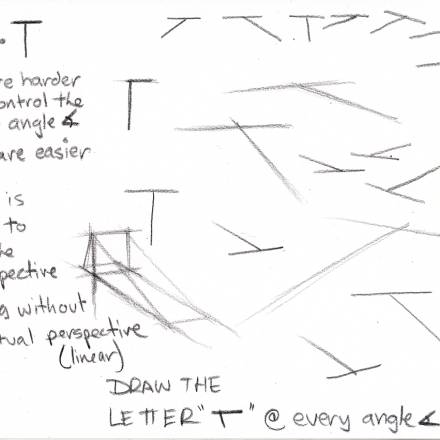 • T
re harder
ontrol the
angle
are easier
is
to
he
pective
g without
tual perspective
(linear)
DRAW THE
LETTER "T" @ every angle